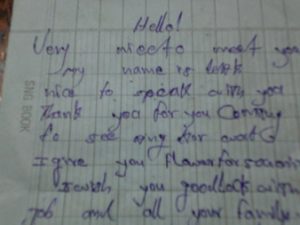 Hello!
Very nice to meet you
my name is
nice to speak with you
thank you for you coming
to see my
I give you flower for
you goodlock with
job and all your family
SNG BOOK